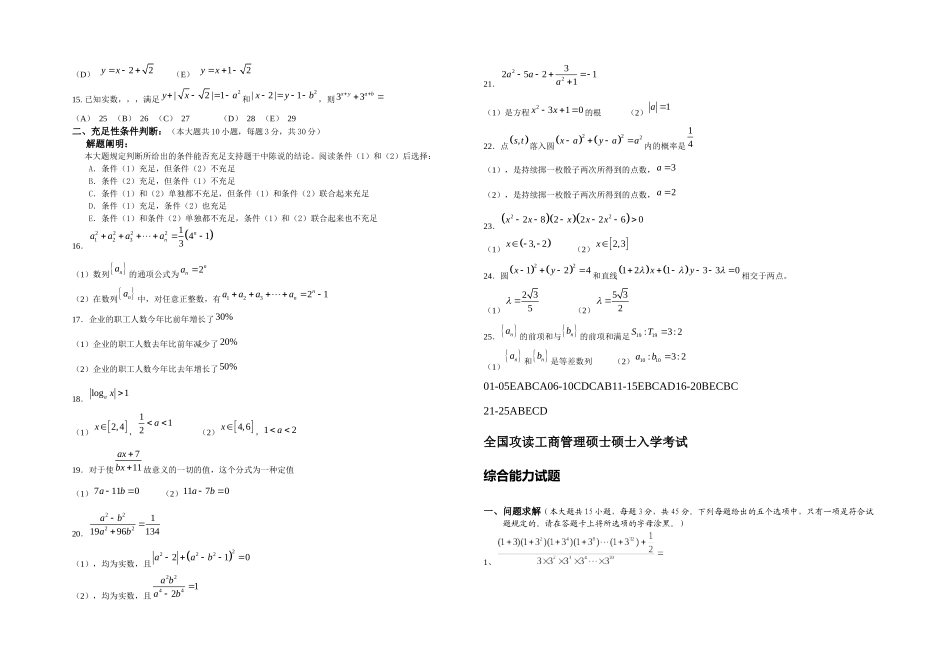 （D） y=x-2+√2 （E） y=x+1-√2
15. 已知实数，，，满足 y+|√x-√2|=1-a² 和 |x-2|=y-1-b²，则 3^(x+y)+3^(a+b)=
（A） 25 （B） 26 （C） 27 （D） 28 （E） 29
二、充足性条件判断：（本大题共10小题，每题3分，共30分）
解题阐明：
本大题规定判断所给出的条件能否充足支持题干中陈说的结论。阅读条件（1）和（2）后选择：
A. 条件（1）充足，但条件（2）不充足
B. 条件（2）充足，但条件（1）不充足
C. 条件（1）和（2）单独都不充足，但条件（1）和条件（2）联合起来充足
D. 条件（1）充足，条件（2）也充足
E. 条件（1）和条件（2）单独都不充足，条件（1）和（2）联合起来也不充足
16. a₁²+a₂²+a₃²+⋯+aₙ² 1/3(4ⁿ-1)
（1）数列{aₙ}的通项公式为 aₙ=2ⁿ
（2）在数列{aₙ}中，对任意正整数，有 a₁+a₂+a₃+⋯+aₙ=2ⁿ-1
17. 企业的职工人数今年比前年增长了30%
（1）企业的职工人数去年比前年减少了20%
（2）企业的职工人数今年比去年增长了50%
18. |logₐ x|>1
（1） x∈[2,4]，1/2<a<1 （2） x∈[4,6]，1<a<2
19. 对于使 (ax+7)/(bx+11) 故意义的一切的值，这个分式为一种定值
（1） 7a-11b=0 （2） 11a-7b=0
20. (a²-b²)/(19a²+96b²)=1/134
（1），均为实数，且 |a²-2|+(a²-b²-1)²=0
（2），均为实数，且 a²b²/(a⁴-2b⁴)=1
21. 2a²-5a-2+3/(a²+1)=-1
（1）是方程 x²-3x+1=0 的根 （2） |a|=1
22. 点(s,t)落入圆 (x-a)²+(y-a)²=a² 内的概率是 1/4
（1），是持续掷一枚骰子两次所得到的点数，a=3
（2），是持续掷一枚骰子两次所得到的点数，a=2
23. (x²-2x-8)(2-x)(2x-2x²-6)>0
（1） x∈(-3,-2) （2） x∈[2,3]
24. 圆 (x-1)²+(y-2)²=4 和直线 (1+2λ)x+(1-λ)y-3-3λ=0 相交于两点。
（1） λ=2√3/5 （2） λ=5√3/2
25. {aₙ}的前项和与{bₙ}的前项和满足 S₁₉:T₁₉=3:2
（1）{aₙ}和{bₙ}是等差数列 （2） a₁₀:b₁₀=3:2
01-05EABCA06-10CDCAB11-15EBCAD16-20BECBC
21-25ABECD
全国攻读工商管理硕士硕士入学考试
综合能力试题
一、问题求解（本大题共15小题，每题3分，共45分。下列每题给出的五个选项中，只有一项是符合试
题规定的。请在答题卡上将所选项的字母涂黑。）
1、 ((1+3)(1+3²)(1+3⁴)(1+3⁸)⋯(1+3³²)+1/2)/(3×3²×3³×3⁴×⋯×3¹⁰)=